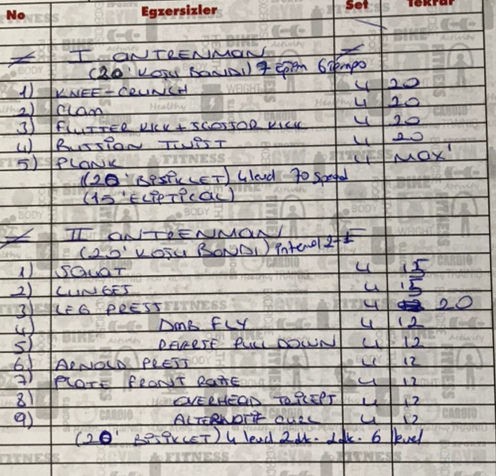 No Egzersizler Set Tekrar
I ANTRENMAN
(20' KOŞU BANDI) 7 eğim 6 tempo
1) KNEE-CRUNCH 4 20
2) CLAM 4 20
3) FLUTTER KICK + SCISSOR KICK 4 20
4) RUSSION TWIST 4 20
5) PLANK 4 MAX'
(20' BİSİKLET) 4 level 70 speed
(15' ELİPTİCAL)
II ANTRENMAN
(20' KOŞU BANDI) interval 2-1
1) SQUAT 4 15
2) LUNGES 4 15
3) LEG PRESS 4 20
4) DMB FLY 4 12
5) REVERSE PULL DOWN 4 12
6) ARNOLD PRESS 4 12
7) PLATE FRONT RAISE 4 12
8) OVERHEAD 4 12
9) ALTERNATİF 4 12
(20' BİSİKLET) 4 level 2dk. 1dk. 6 level